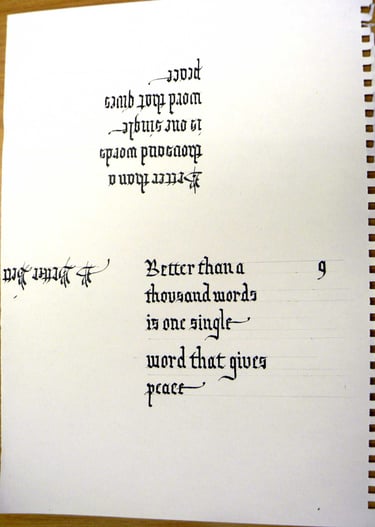 Better than a
thousand words
is one single
word that gives
peace
B Better Bett
Better than a 9
thousand words
is one single
word that gives
peace